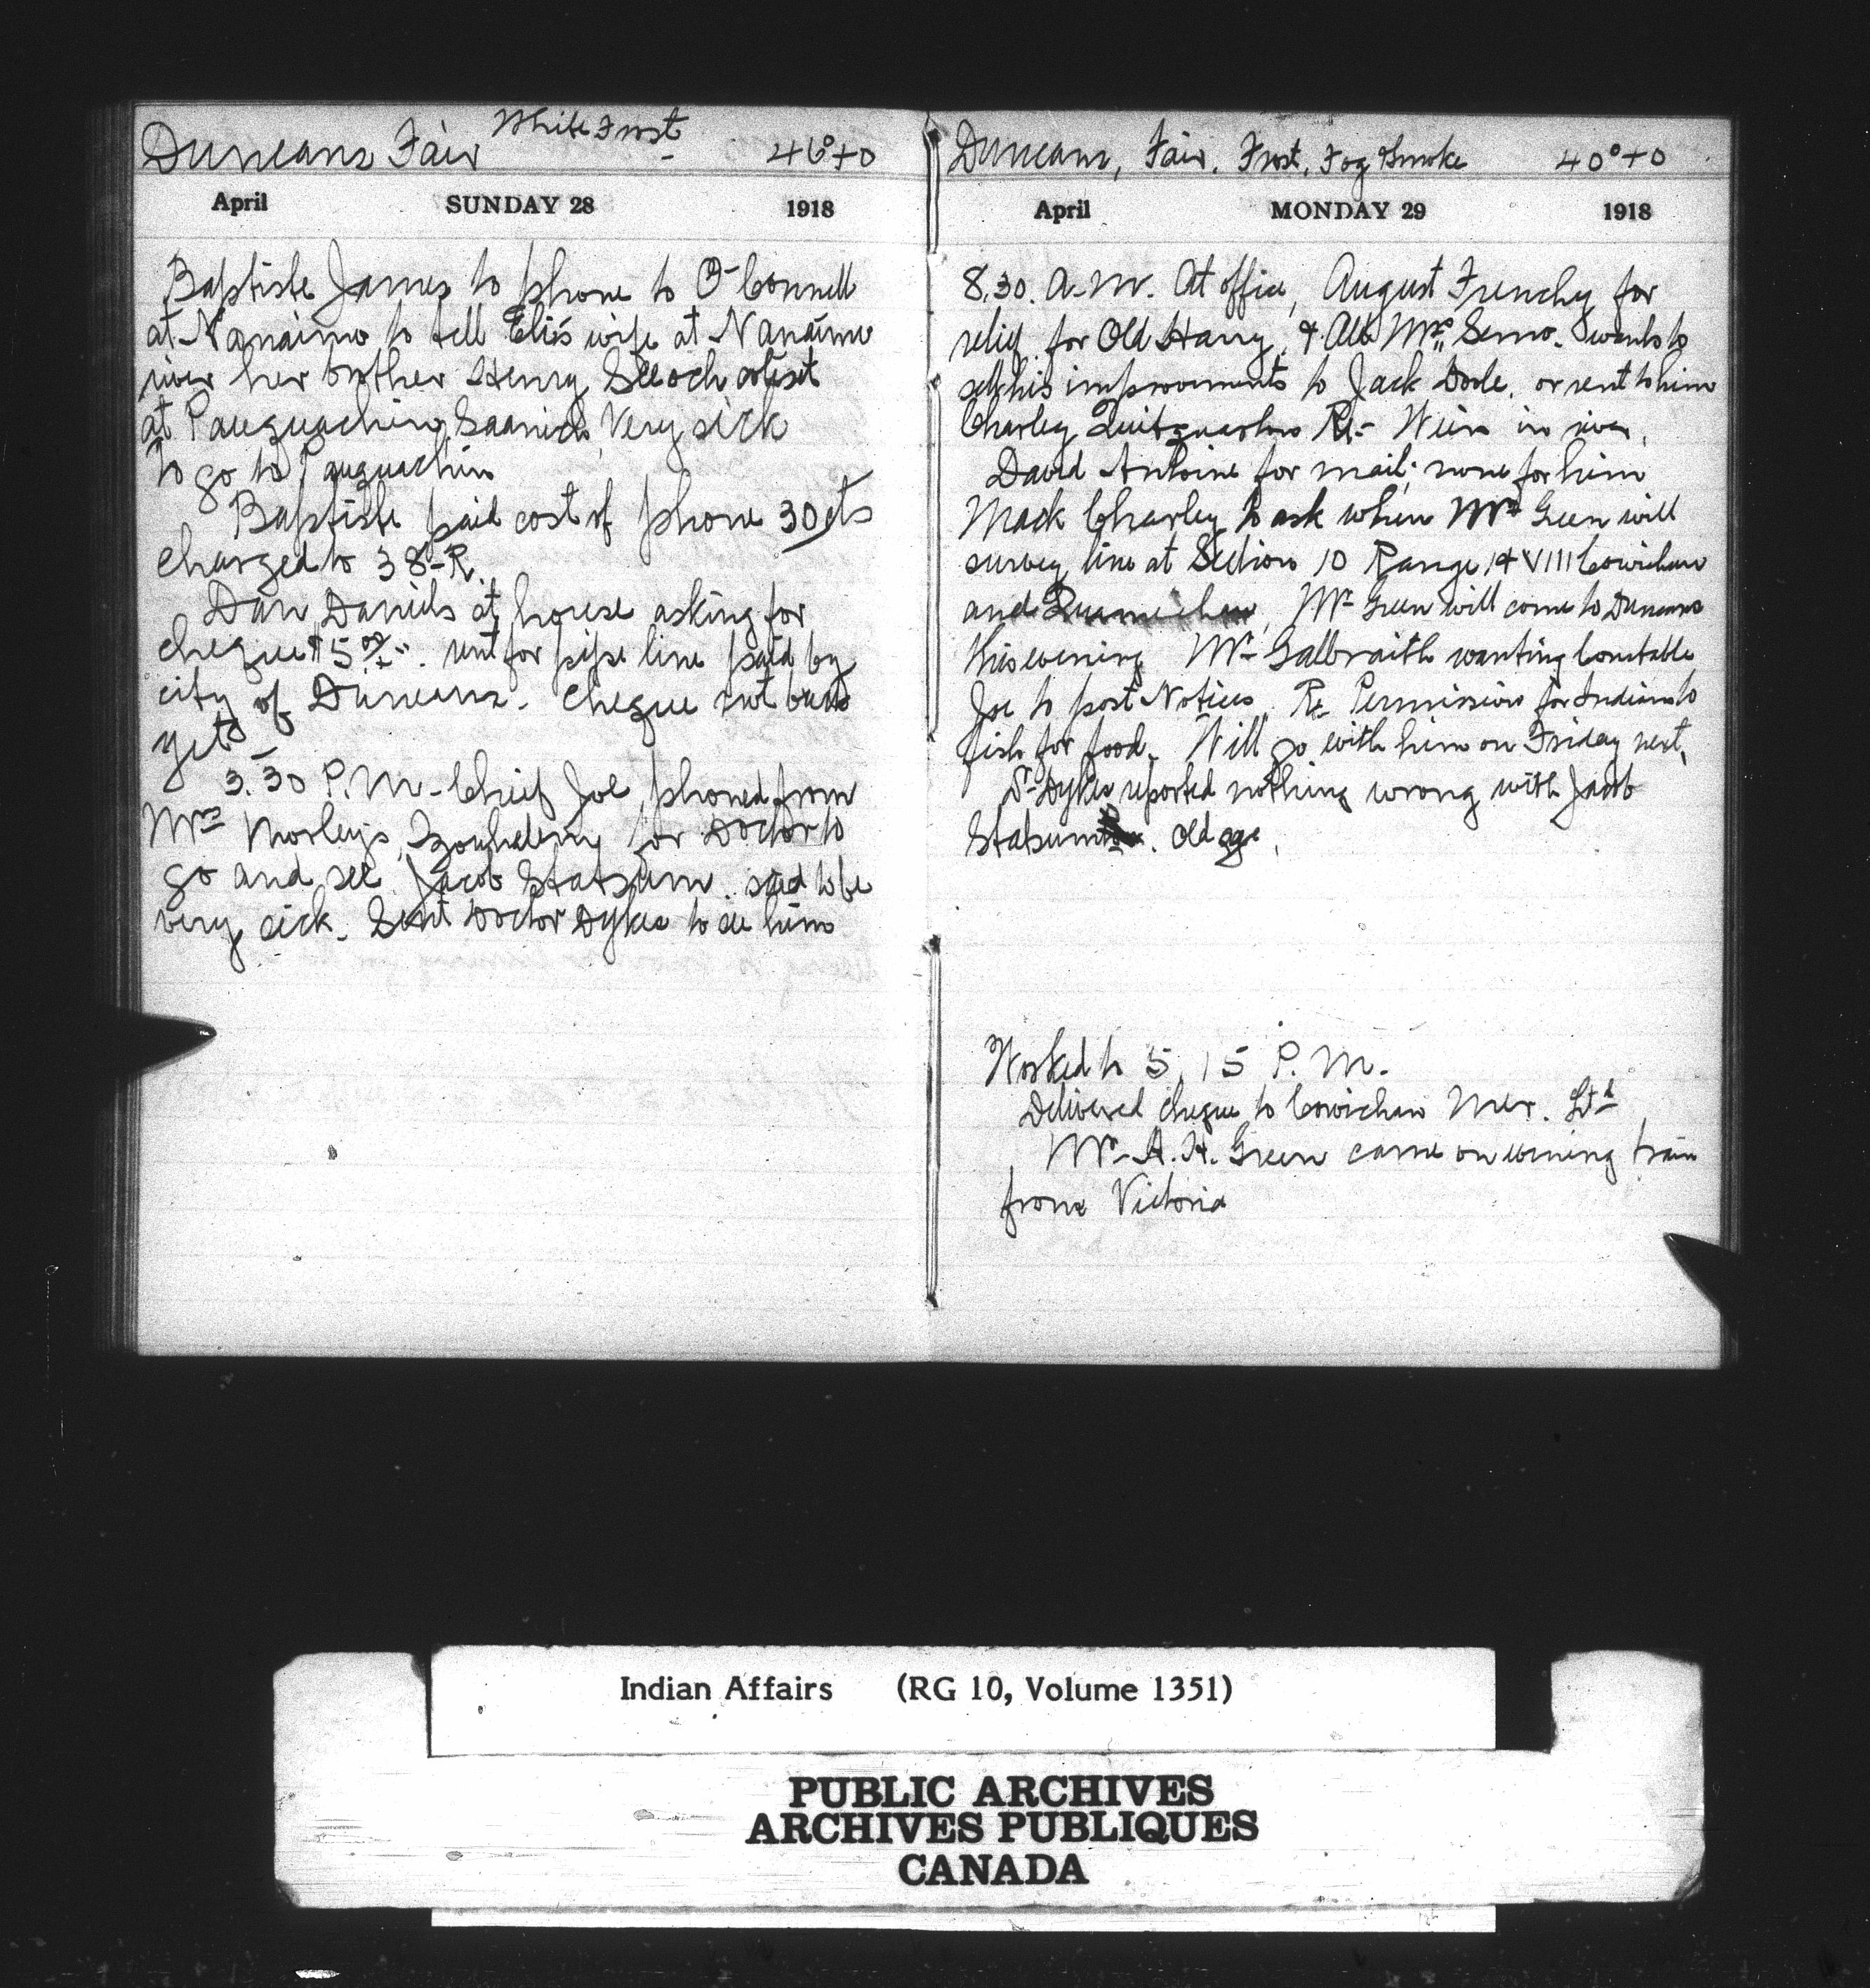 Duncans Fair White Frost 46°+0
April SUNDAY 28 1918
Baptiste James to phone to O'Connell
at Nanaimo to tell Eli's wife at Nanaimo
river her brother Henry
at Pauquachin, Saanich, Very sick
to go to Pauquachin
Baptiste paid cost of phone 30 cts
charged to 38-R.
Dan Daniels at house asking for
cheque $5 rent for pipe line paid by
city of Duncans. Cheque not back
yet
3.30 P.M. - Chief Joe, phoned from
Mrs Morley's, for Doctor to
go and see Jacob Statsum. said to be
very sick. Sent Doctor Dykes to see him
Duncans, Fair. Frost. Fog & Smoke 40°+0
April MONDAY 29 1918
8.30. A.M. At office, August Frenchy for
relief for Old Harry, & wants to
sell his improvements to Jack or rent to him
Charley Re- Weir in river.
David Antoine for mail; none for him
Mack Charley to ask when Mr Green will
survey line at Section 10 Range VIII Cowichan
and Mr Green will come to Duncans
this evening Mr Galbraith wanting Constable
Joe to post Notices Re Permission for Indians to
fish for food. Will go with him on Friday next,
Dr Dykes reported nothing wrong with Jacob
Statsum. Old age.
Worked to 5.15 P.M.
Delivered cheque to Cowichan Mer. Ltd
Mr. A. H. Green came on evening train
from Victoria
Indian Affairs (RG 10, Volume 1351)
PUBLIC ARCHIVES
ARCHIVES PUBLIQUES
CANADA